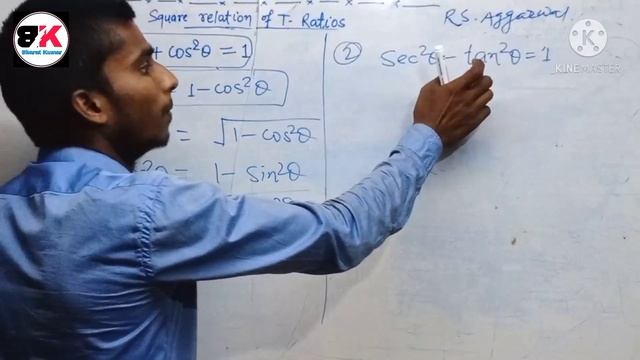 BK
Bharat Kumar
Square relation of T- Ratios
R.S. Aggarwal
+ cos²θ = 1
1 - cos²θ
= √1 - cos²θ
= 1 - sin²θ
② sec²θ - tan²θ = 1
KINEMASTER